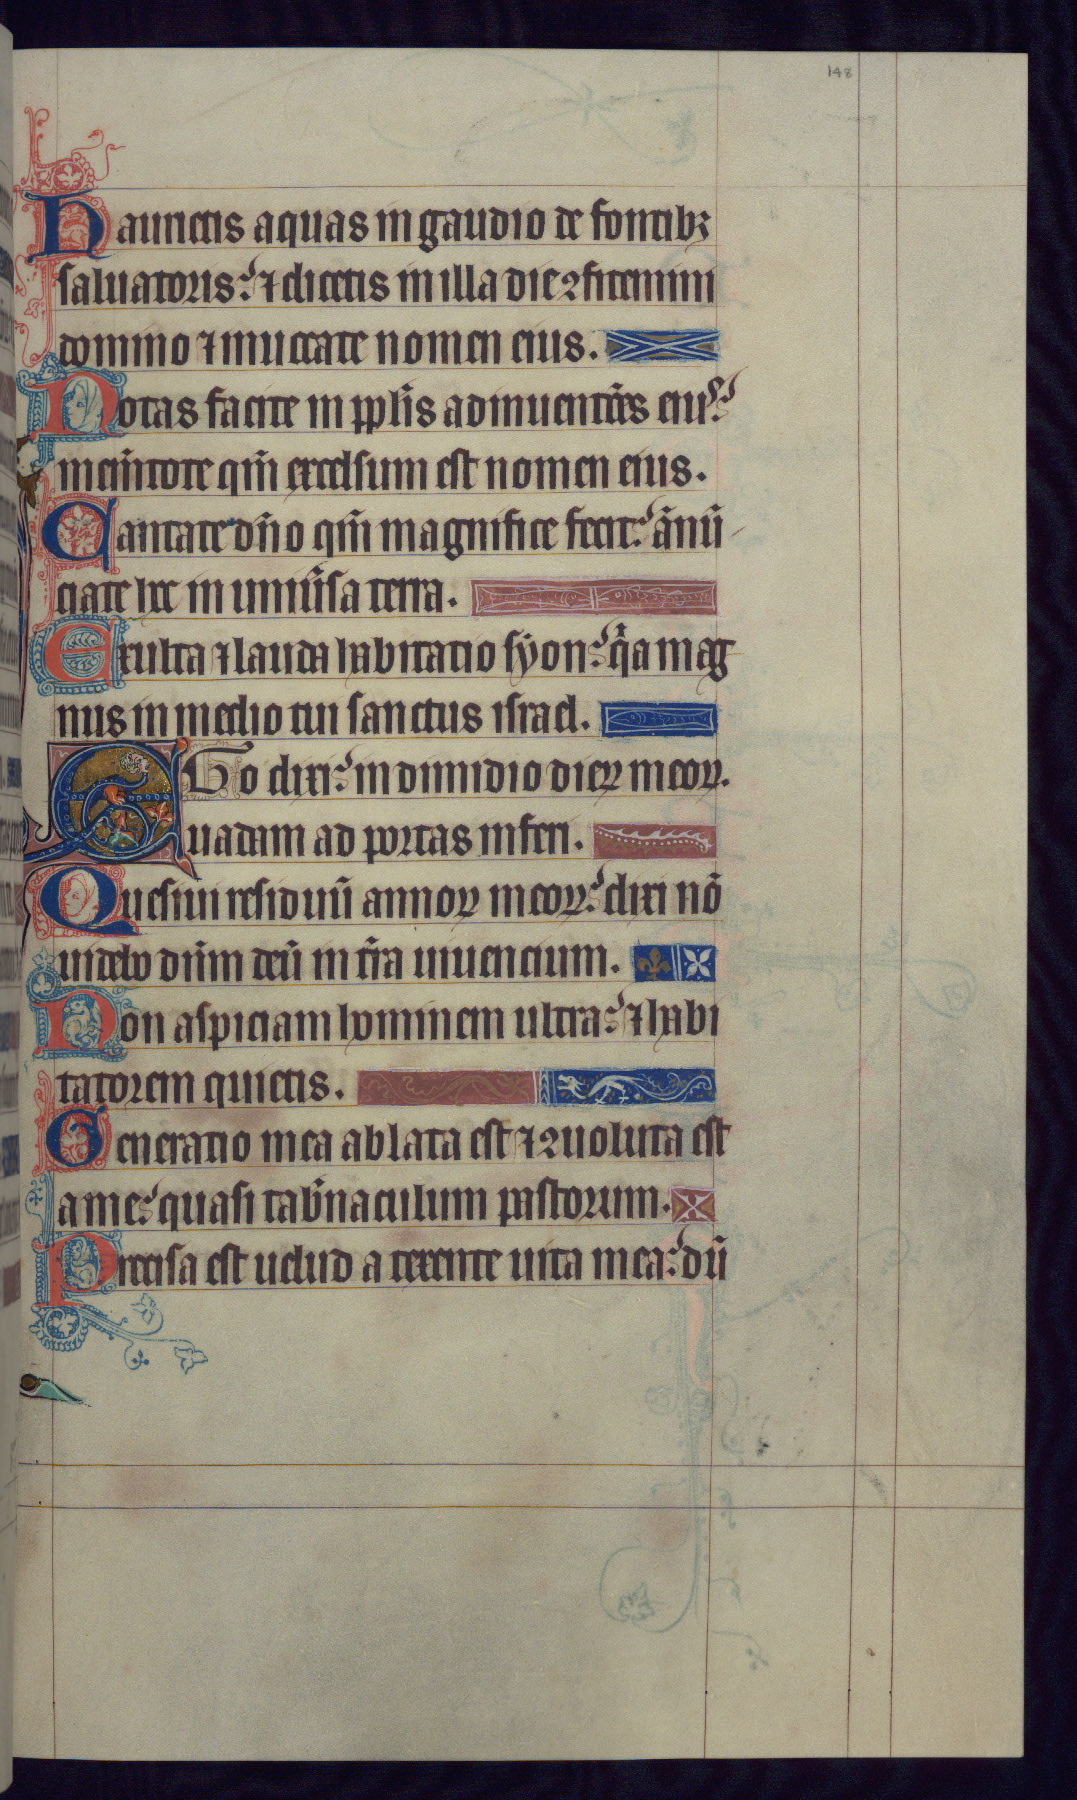 148
Haurietis aquas in gaudio de fontibꝫ
saluatoris: ⁊ dicetis in illa die ꝯfitemini
domino ⁊ inuocate nomen eius.
Notas facite in pplīs adinuentōes eiꝰ:
mem̄tote qm̄ excelsum est nomen eius.
Cantate dn̄o qm̄ magnifice fecit: ānū
ciate hec in uniūsa terra.
Exulta ⁊ lauda habitatio syon: q̄a mag
nus in medio tui sanctus israel.
EGo dixi: in dimidio dieꝝ meoꝝ.
uadam ad portas inferi.
Quesiui residuū annoꝝ meoꝝ: dixi nō
uidebo dūm deū in t̄ra uiuencium.
Non aspiciam hominem ultra: ⁊ habi
tatorem quietis.
Generatio mea ablata est ⁊ ꝯuoluta est
a me: quasi tab̄naculum pastorum.
Precisa est uelud a texente uita mea: dū